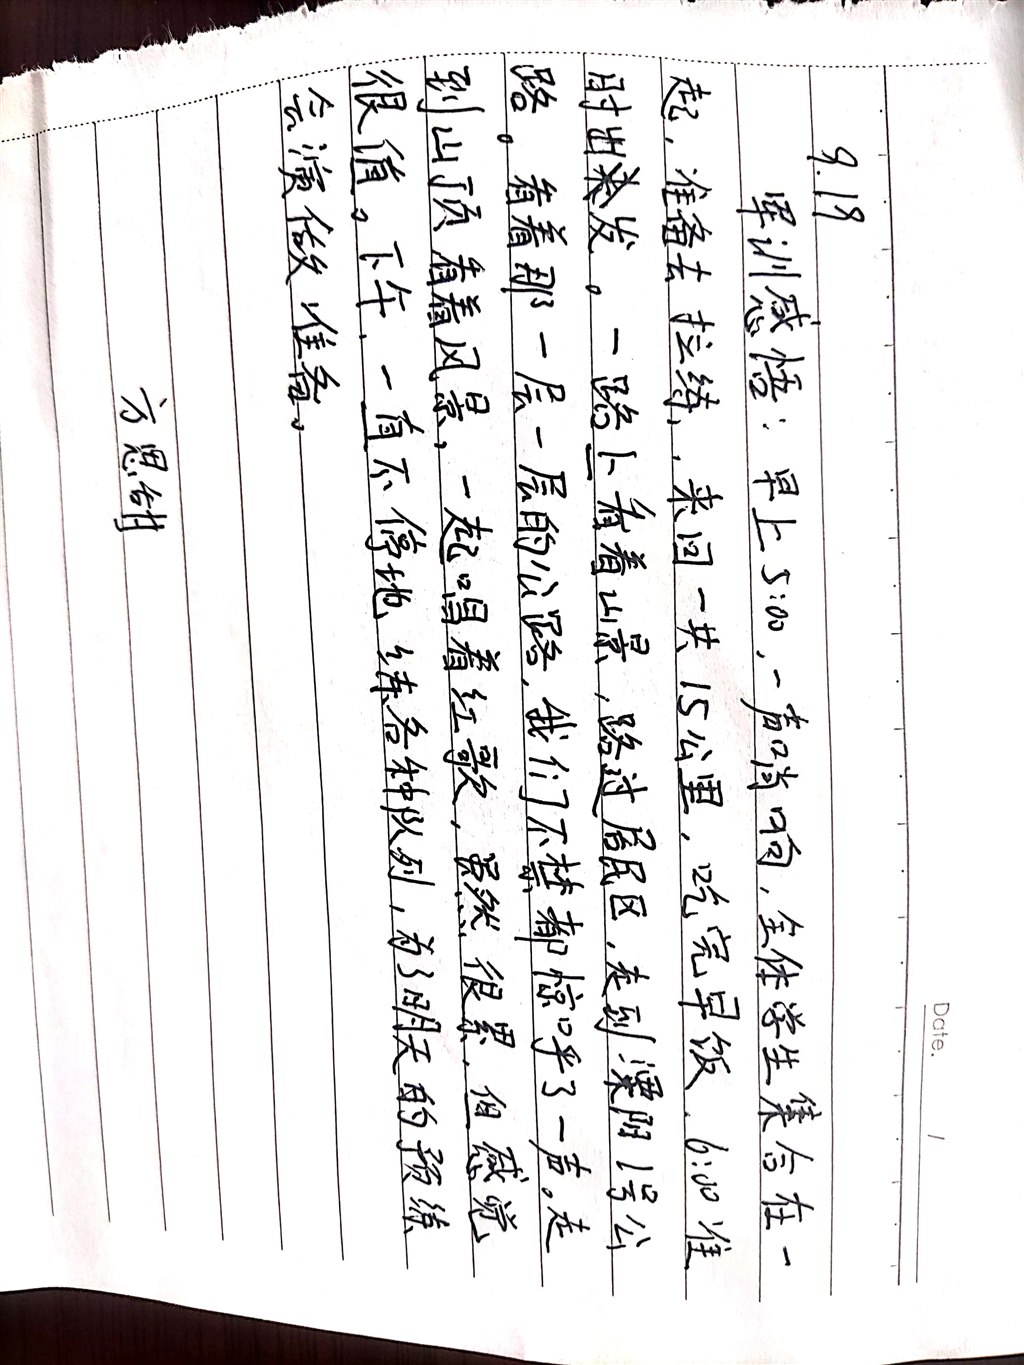 Date. /
9.19
军训感悟：早上5:00，一声哨响，全体学生集合在一
起，准备去拉练，来回一共15公里，吃完早饭，6:00准
时出发。一路上看着山景，路过居民区，走到溧阳1号公
路。看着那一层一层的公路，我们不禁都惊呼了一声。走
到山顶看着风景，一起唱着红歌，虽然很累，但感觉
很值。下午，一直不停地练各种队列，为了明天的预练
会演做准备。
方思